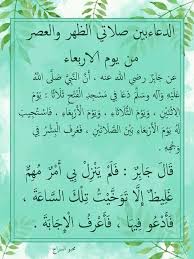 الدعاء بين صلاتي الظهر والعصر
من يوم الاربعاء
عَنْ جَابِرٍ رَضِيَ اللَّهُ عَنْهُ ، أَنَّ النَّبِيَّ صَلَّى اللَّهُ
عَلَيْهِ وَآلِهِ وَسَلَّمَ دَعَا فِي مَسْجِدِ الْفَتْحِ ثَلَاثًا : يَوْمَ الْاِثْنَيْنِ
، وَيَوْمَ الثُّلَاثَاءِ ، وَيَوْمَ الْأَرْبِعَاءِ ، فَاسْتُجِيبَ لَهُ
يَوْمَ الْأَرْبِعَاءِ بَيْنَ الصَّلَاتَيْنِ ، فَعُرِفَ الْبِشْرُ فِي
وَجْهِهِ .
قَالَ جَابِرٌ : فَلَمْ يَنْزِلْ بِي أَمْرٌ مُهِمٌّ
غَلِيظٌ إِلَّا تَوَخَّيْتُ تِلْكَ السَّاعَةَ ،
فَأَدْعُو فِيهَا ، فَأَعْرِفُ الْإِجَابَةَ .